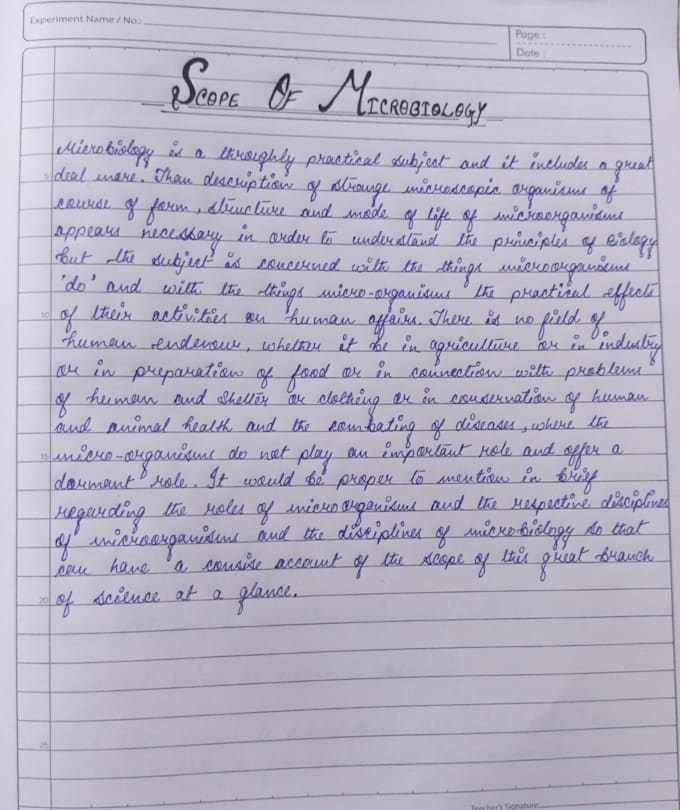 Experiment Name / No.:
Page :
Date :
SCOPE OF MICROBIOLOGY
Microbiology is a throughly practical subject and it includes a great
5 deal more. Than description of strange microscopic organisms of
course of form, structure and mode of life of microorganisms
appears necessary in order to understand the principles of Biology
but the subject is concerned with the things microorganisms
'do' and with the things micro-organisms the practical effects
10 of their activities on human affairs. There is no field of
human endevour, whether it be in agriculture or in industry
or in preparation of food or in connection with problems
of human and shelter or clothing or in conservation of human
and animal health and the combating of diseases, where the
15 micro-organisms do not play an important role and offer a
dormant role. It would be proper to mention in brief
regarding the roles of microorganisms and the respective disciplines
of microorganisms and the disciplines of microbiology so that
can have a consise account of the scope of this great branch
20 of science at a glance.
25
Teacher's Signature: